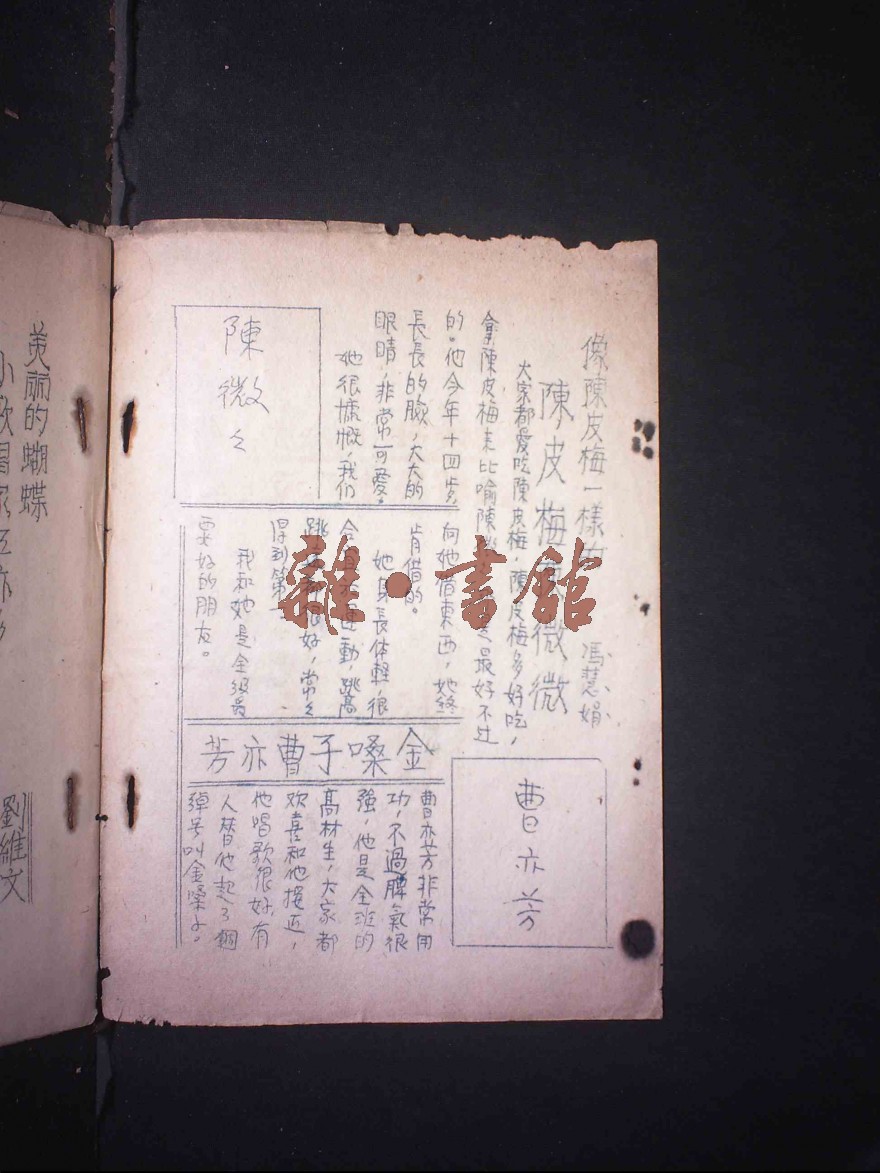 像陳皮梅一樣的
馮慧娟
陳皮梅陳微微
大家都愛吃陳皮梅,陳皮梅多好吃,
拿陳皮梅來比喻陳微最好不过
的。他今年十四歲,
長長的臉,大大的
眼睛,非常可愛。
她很慷慨,我们
向她借東西,她終
肯借的。
她身長体輕,很
合宜於運動,跳高
跳遠都很好,常々
得到第一
我和她是全級最
要好的朋友。
陳微々
金嗓子曹亦芳
曹亦芳
曹亦芳非常用
功,不過脾氣很
強,他是全班的
高材生,大家都
欢喜和他接近,
他唱歌很好,有
人替他起了個
綽号叫金嗓子。
美丽的蝴蝶
小歌唱家
劉維文
雜·書館